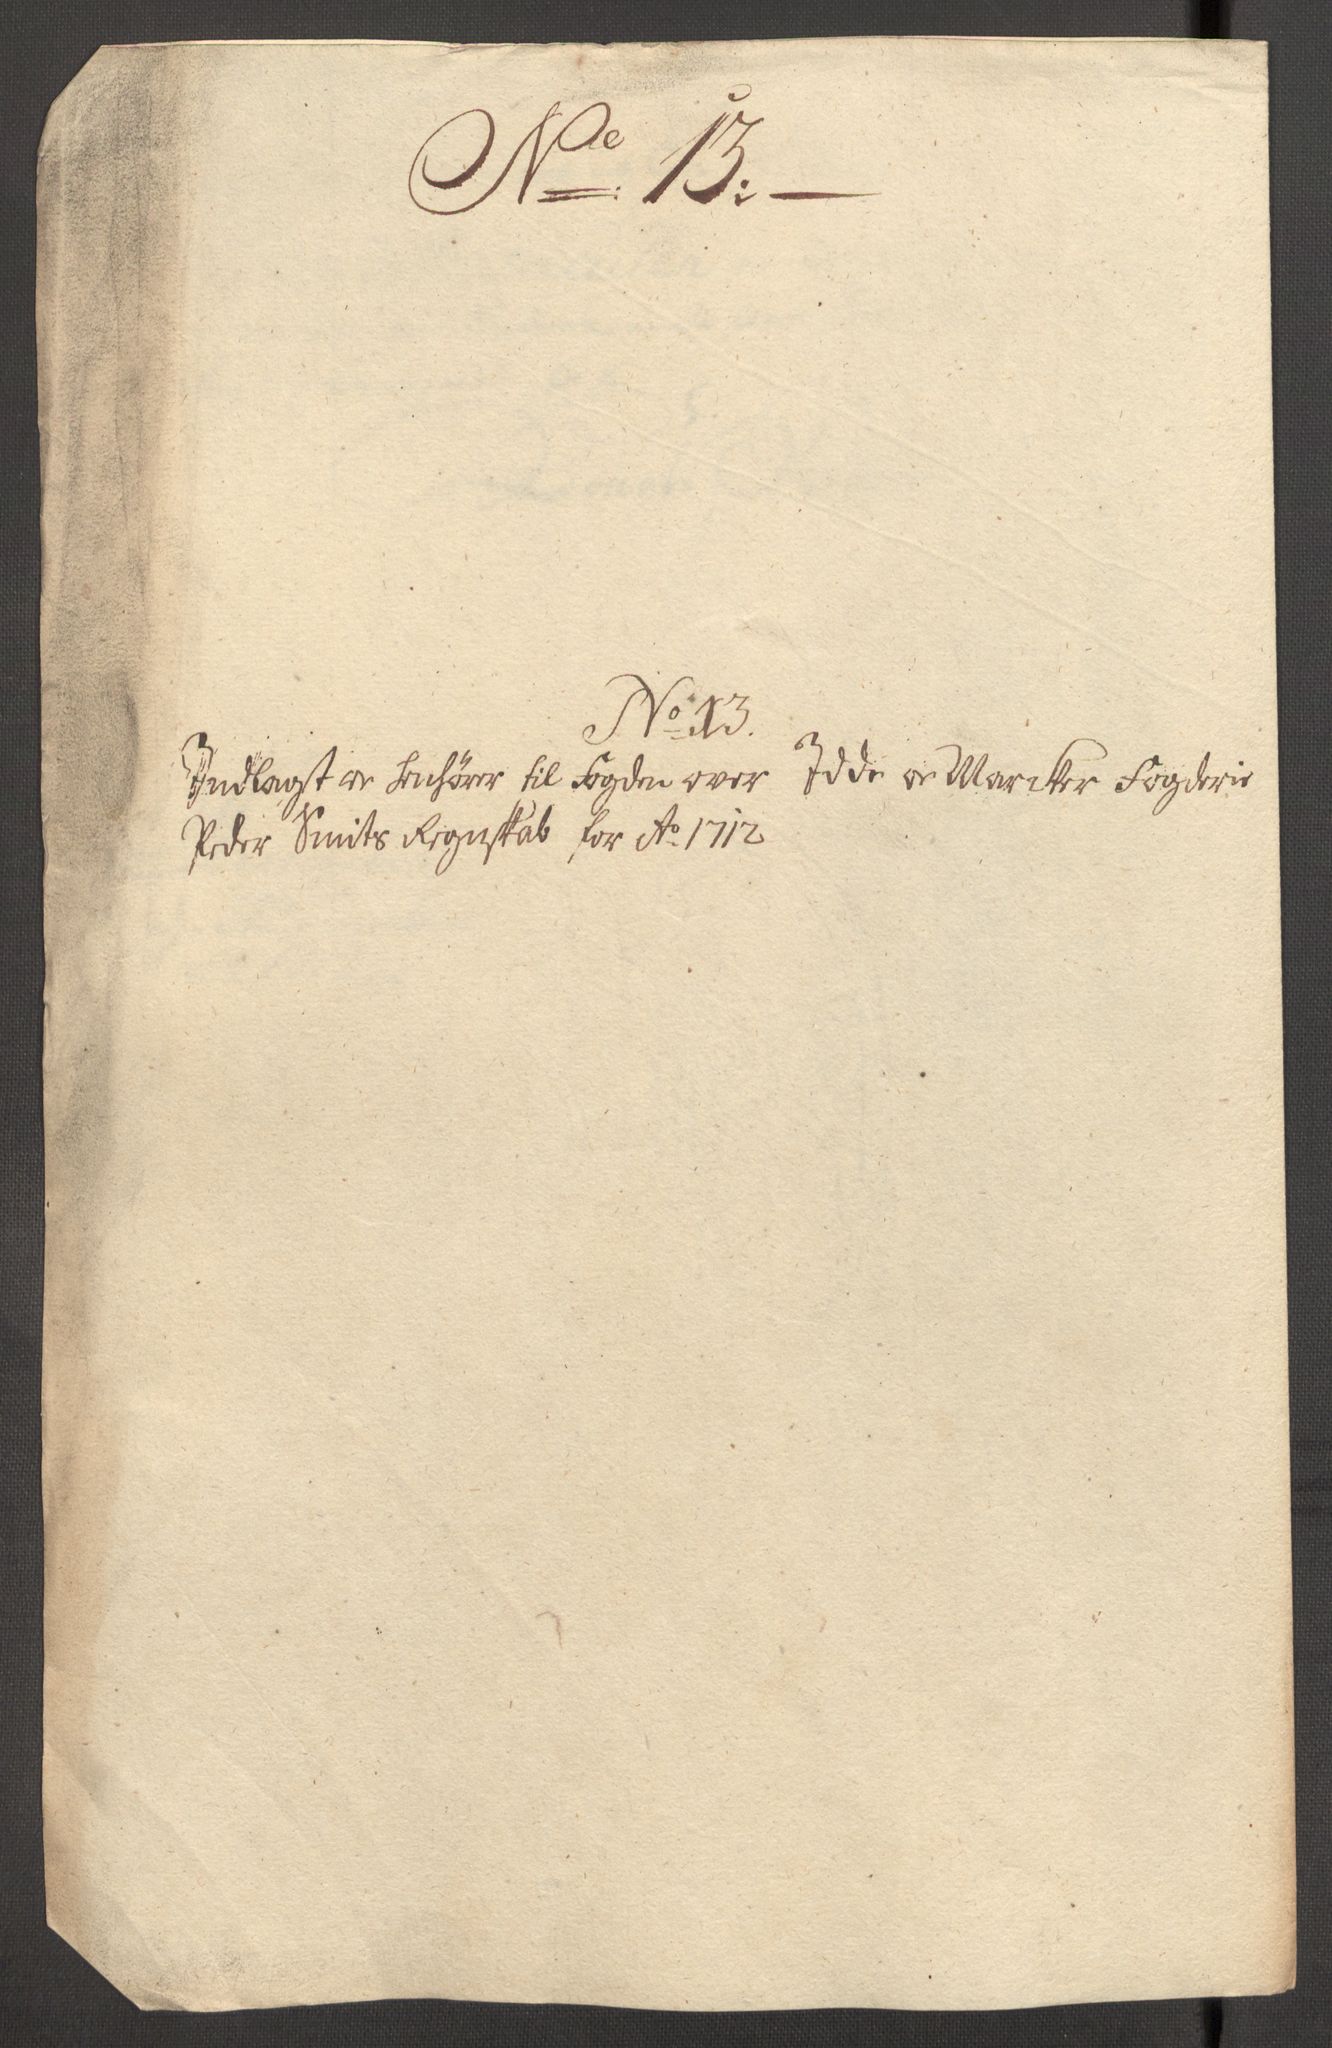 No 13:
No 13.
Indlagst oc henhører til Fogden over Idde oc Marcker Fogderie
Peder Smits Regnskab for Ao 1712